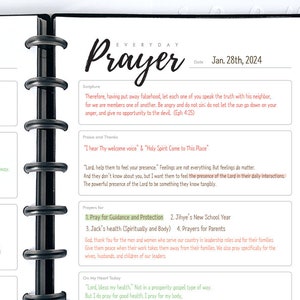 EVERYDAY
Prayer
Date: Jan. 28th, 2024
Scripture
Therefore, having put away falsehood, let each one of you speak the truth with his neighbor,
for we are members one of another. Be angry and do not sin; do not let the sun go down on your
anger, and give no opportunity to the devil. (Eph. 4:25)
Praise and Thanks
"I hear Thy welcome voice" & "Holy Spirit Come to This Place"
"Lord, help them to feel your presence." Feelings are not everything. But feelings do matter.
And they don't know about you, but I want them to feel the presence of the Lord in their daily interactions.
The powerful presence of the Lord to be something they know tangibly.
Prayers for
1. Pray for Guidance and Protection 2. Jihye's New School Year
3. Jack's health (Spiritually and Body) 4. Prayers for Parents
God, thank You for the men and women who serve our country in leadership roles and for their families.
Give them peace when their work takes them away from their families. We also pray specifically for the
wives, husbands, and children of our leaders.
On My Heart Today
"Lord, bless my health." Not in a prosperity gospel type of way.
But I do pray for good health. I pray for my body,